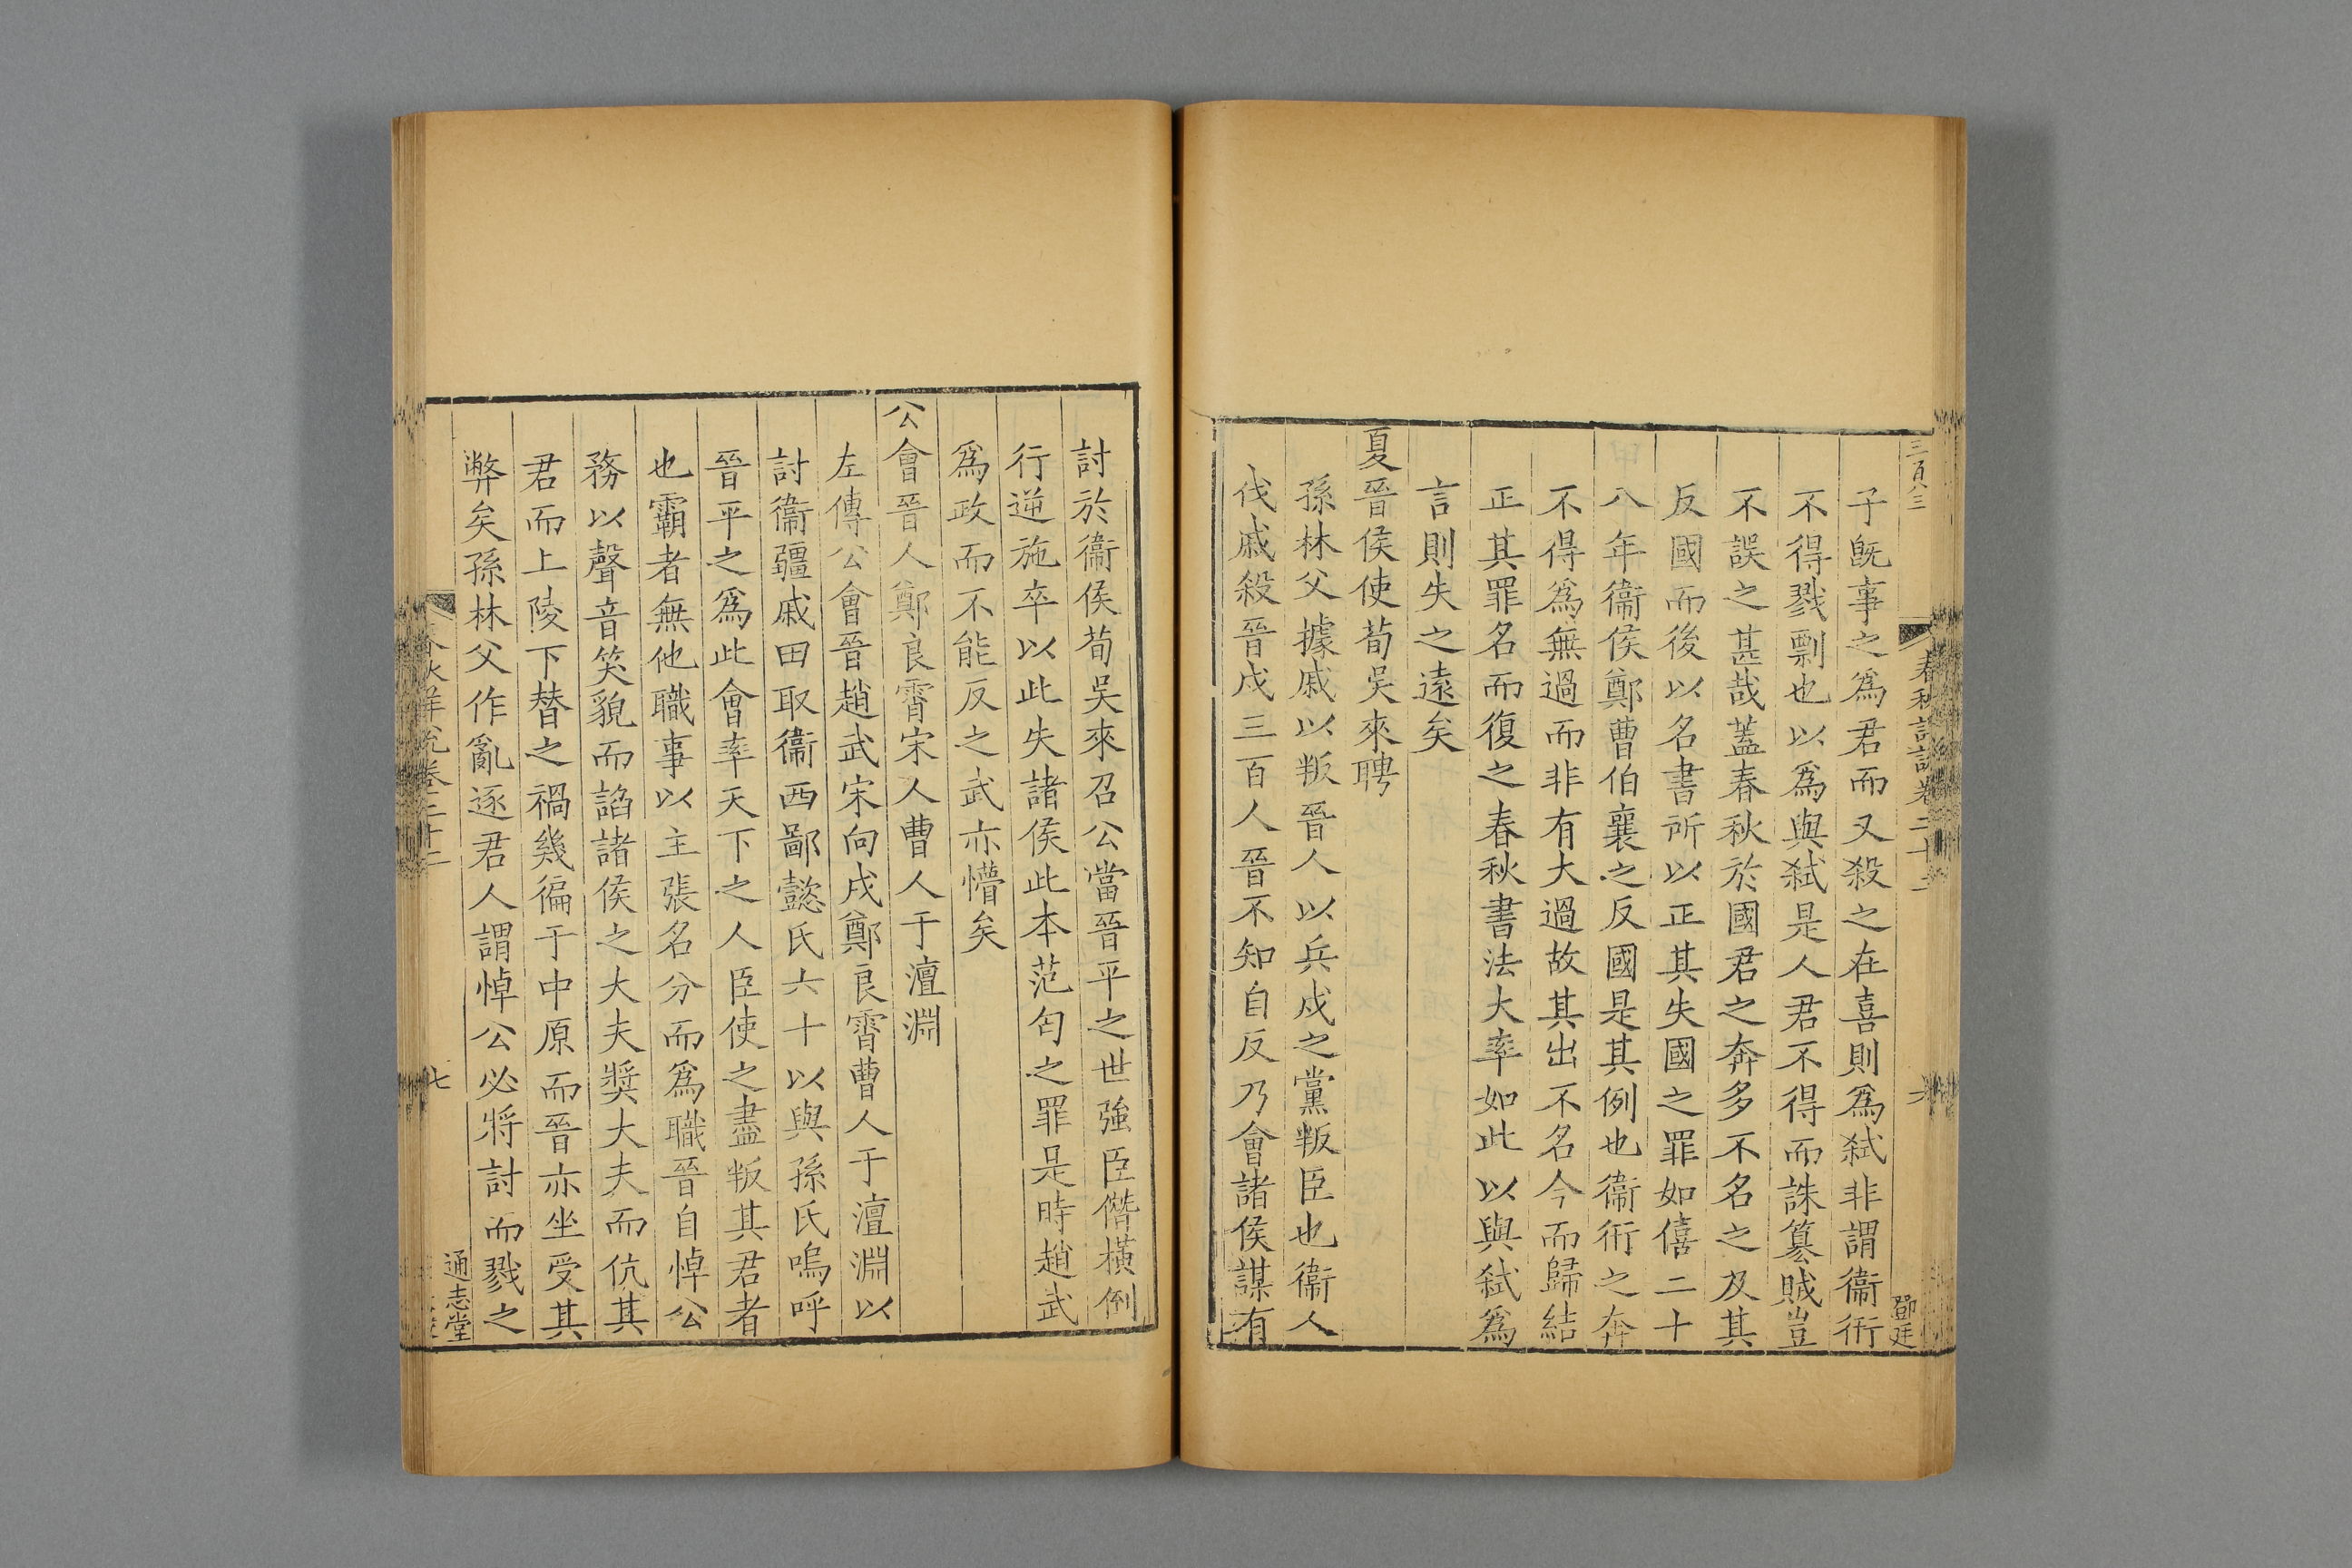 三百八三
春秋詳說卷二十二
六
鄧廷
子旣事之爲君而又殺之在喜則爲弑非謂衞衎
不得戮剽也以爲與弑是人君不得而誅簒賊豈
不誤之甚哉蓋春秋於國君之奔多不名之及其
反國而後以名書所以正其失國之罪如僖二十
八年衞侯鄭曹伯襄之反國是其例也衞衎之奔
不得爲無過而非有大過故其出不名今而歸結
正其罪名而復之春秋書法大率如此以與弑爲
言則失之遠矣
夏晉侯使荀吳來聘
孫林父據戚以叛晉人以兵戍之黨叛臣也衞人
伐戚殺晉戍三百人晉不知自反乃會諸侯謀有
討於衞侯荀吳來召公當晉平之世強臣僭橫倒
行逆施卒以此失諸侯此本范匄之罪是時趙武
爲政而不能反之武亦懵矣
公會晉人鄭良霄宋人曹人于澶淵
左傳公會晉趙武宋向戌鄭良霄曹人于澶淵以
討衞疆戚田取衞西鄙懿氏六十以與孫氏嗚呼
晉平之爲此會率天下之人臣使之盡叛其君者
也霸者無他職事以主張名分而爲職晉自悼公
務以聲音笑貌而諂諸侯之大夫奬大夫而伉其
君而上陵下替之禍幾徧于中原而晉亦坐受其
弊矣孫林父作亂逐君人謂悼公必將討而戮之
春秋詳說卷二十二
七
通志堂